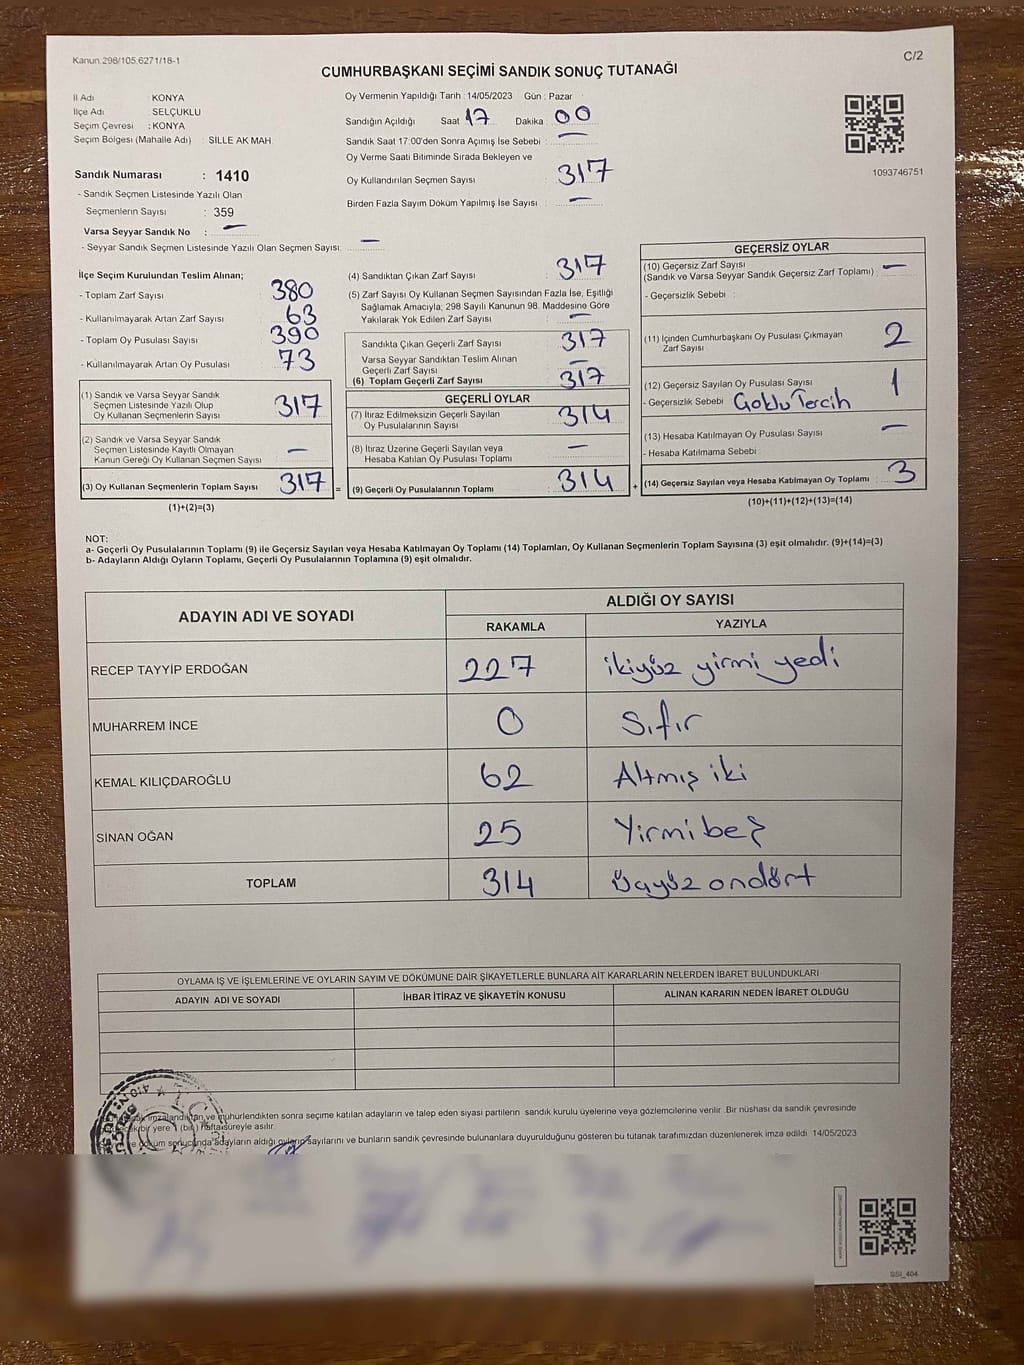 Kanun.298/105.6271/18-1
C/2
CUMHURBAŞKANI SEÇİMİ SANDIK SONUÇ TUTANAĞI
İl Adı : KONYA
İlçe Adı : SELÇUKLU
Seçim Çevresi : KONYA
Seçim Bölgesi (Mahalle Adı) : SILLE AK MAH.
Sandık Numarası : 1410
- Sandık Seçmen Listesinde Yazılı Olan
Seçmenlerin Sayısı : 359
Varsa Seyyar Sandık No : —
- Seyyar Sandık Seçmen Listesinde Yazılı Olan Seçmen Sayısı: —
Oy Vermenin Yapıldığı Tarih : 14/05/2023 Gün : Pazar
Sandığın Açıldığı Saat 17 Dakika : 00
Sandık Saat 17:00'den Sonra Açımış İse Sebebi : —
Oy Verme Saati Bitiminde Sırada Bekleyen ve
Oy Kullandırılan Seçmen Sayısı : 317
Birden Fazla Sayım Döküm Yapılmış İse Sayısı : —
1093746751
İlçe Seçim Kurulundan Teslim Alınan;
- Toplam Zarf Sayısı 380
- Kullanılmayarak Artan Zarf Sayısı : 63
- Toplam Oy Pusulası Sayısı : 390
- Kullanılmayarak Artan Oy Pusulası : 73
(1) Sandık ve Varsa Seyyar Sandık
Seçmen Listesinde Yazılı Olup
Oy Kullanan Seçmenlerin Sayısı : 317
(2) Sandık ve Varsa Seyyar Sandık
Seçmen Listesinde Kayıtlı Olmayan
Kanun Gereği Oy Kullanan Seçmen Sayısı : —
(3) Oy Kullanan Seçmenlerin Toplam Sayısı : 317 =
(1)+(2)=(3)
(4) Sandıktan Çıkan Zarf Sayısı : 317
(5) Zarf Sayısı Oy Kullanan Seçmen Sayısından Fazla İse, Eşitliği
Sağlamak Amacıyla; 298 Sayılı Kanunun 98. Maddesine Göre
Yakılarak Yok Edilen Zarf Sayısı : —
Sandıkta Çıkan Geçerli Zarf Sayısı : 317
Varsa Seyyar Sandıktan Teslim Alınan
Geçerli Zarf Sayısı : —
(6) Toplam Geçerli Zarf Sayısı : 317
GEÇERLİ OYLAR
(7) İtiraz Edilmeksizin Geçerli Sayılan
Oy Pusulalarının Sayısı : 314
(8) İtiraz Üzerine Geçerli Sayılan veya
Hesaba Katılan Oy Pusulası Toplamı : —
(9) Geçerli Oy Pusulalarının Toplamı : 314 +
GEÇERSİZ OYLAR
(10) Geçersiz Zarf Sayısı
(Sandık ve Varsa Seyyar Sandık Geçersiz Zarf Toplamı) : —
- Geçersizlik Sebebi :
(11) İçinden Cumhurbaşkanı Oy Pusulası Çıkmayan
Zarf Sayısı : 2
(12) Geçersiz Sayılan Oy Pusulası Sayısı : 1
- Geçersizlik Sebebi Çoklu Tercih
(13) Hesaba Katılmayan Oy Pusulası Sayısı : —
- Hesaba Katılmama Sebebi
(14) Geçersiz Sayılan veya Hesaba Katılmayan Oy Toplamı : 3
(10)+(11)+(12)+(13)=(14)
NOT:
a- Geçerli Oy Pusulalarının Toplamı (9) ile Geçersiz Sayılan veya Hesaba Katılmayan Oy Toplamı (14) Toplamları, Oy Kullanan Seçmenlerin Toplam Sayısına (3) eşit olmalıdır. (9)+(14)=(3)
b- Adayların Aldığı Oyların Toplamı, Geçerli Oy Pusulalarının Toplamına (9) eşit olmalıdır.
ADAYIN ADI VE SOYADI ALDIĞI OY SAYISI
RAKAMLA YAZIYLA
RECEP TAYYİP ERDOĞAN 227 ikiyüz yirmi yedi
MUHARREM İNCE 0 Sıfır
KEMAL KILIÇDAROĞLU 62 Altmış iki
SİNAN OĞAN 25 Yirmi beş
TOPLAM 314 Üçyüz ondört
OYLAMA İŞ VE İŞLEMLERİNE VE OYLARIN SAYIM VE DÖKÜMÜNE DAİR ŞİKAYETLERLE BUNLARA AİT KARARLARIN NELERDEN İBARET BULUNDUKLARI
ADAYIN ADI VE SOYADI İHBAR İTİRAZ VE ŞİKAYETİN KONUSU ALINAN KARARIN NEDEN İBARET OLDUĞU
ve mühürlendikten sonra seçime katılan adayların ve talep eden siyasi partilerin sandık kurulu üyelerine veya gözlemcilerine verilir. Bir nüshası da sandık çevresinde
bir yere 1 (bir) hafta süreyle asılır.
döküm sonucunda adayların aldığı oyların sayılarını ve bunların sandık çevresinde bulunanlara duyurulduğunu gösteren bu tutanak tarafımızdan düzenlenerek imza edildi. 14/05/2023
SSI_404